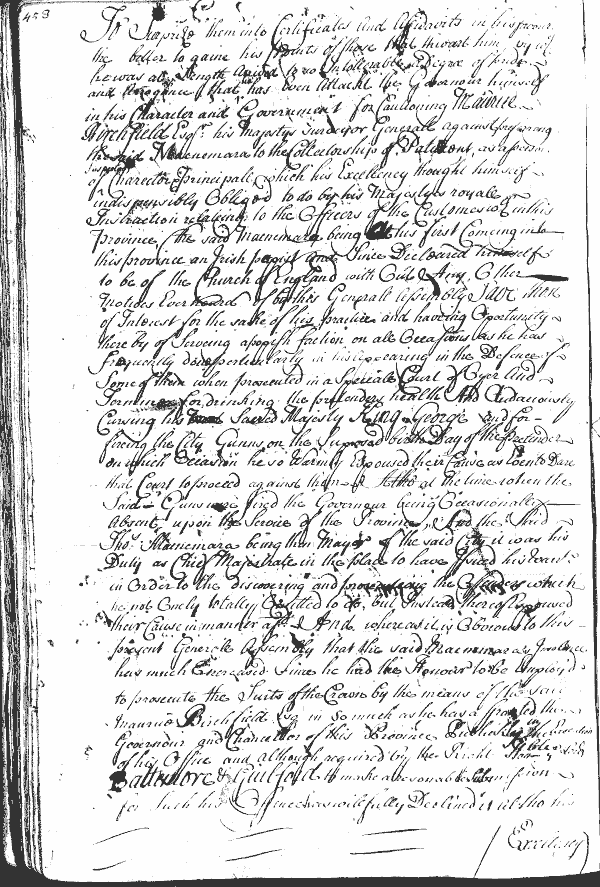 453
To Surprize them into Certificates and Affidavits in his favour
the better to gaine his points of those that thwart him by wch
he was at Length to so Intollerable a degree of pride
and arrogance that has even Attackt the Governour himself
in his Character and Government for Cautioning Maurice
Birchfield Esqr. his Majestys Surveyor Generall against
the said Macnemara to the Collectorship of Patuxent, as a person
of Charecter Principale which his Excellency thought himself
indispensibly Obliged to do by his Majestyes royale
Instruction relateing to the Officers of the Customes within this
Province (the said Macnemara being at his first Comeing into
this province an Irish papist and Since Decleared himself
to be of the Church of England with Out Any Other
motives Ever heard of by this Generall Assembly Save those
of Interest for the sake of his practice and haveing Oportunity
there by of Serveing a popish faction on all Occasions as he has
frequently done perticularly in his appearing in the Defence of
Some of them when prosecuted in a Speciale Court of Oyer And
Terminer for drinking the pretenders health And Audaciously
Cursing his Sacred Majesty King George and for
fireing the City Gunns on the Supposed birth Day of the Pretender
on which Occasion he so Warmly Espoused their Cause as to Dare
that Court to proceed against them & Altho at the time when the
Said Guns were fired the Governour being Occasionally
Absent upon the Service of the Province, And the Said
Thos. Macnemara being then Mayor of the said City it was his
Duty as Chief Majestrate in the place to have Issued his Warrt.
in Order to the discovering and the Offenders which
he not Onely totally Omitted to do, but Instead thereof Espoused
their Cause in manner afd. And whereas it is Obvious to this
present Generall Assembly that the said Macnemaras Insolence
has much Encreased Since he had the Honour to be Employd
to prosecute the Suits of the Crown by the means of the said
Maurice Birchfield Esq in so much as he has affronted the
Governour and Chancellor of this Province Publickly in the Execution
of his Office and although required by the Right Honble. Lords
Baltimore & Guilford to make a resonable Submission
for Such his Offence has wilfully Declined it altho his
/ Excellency